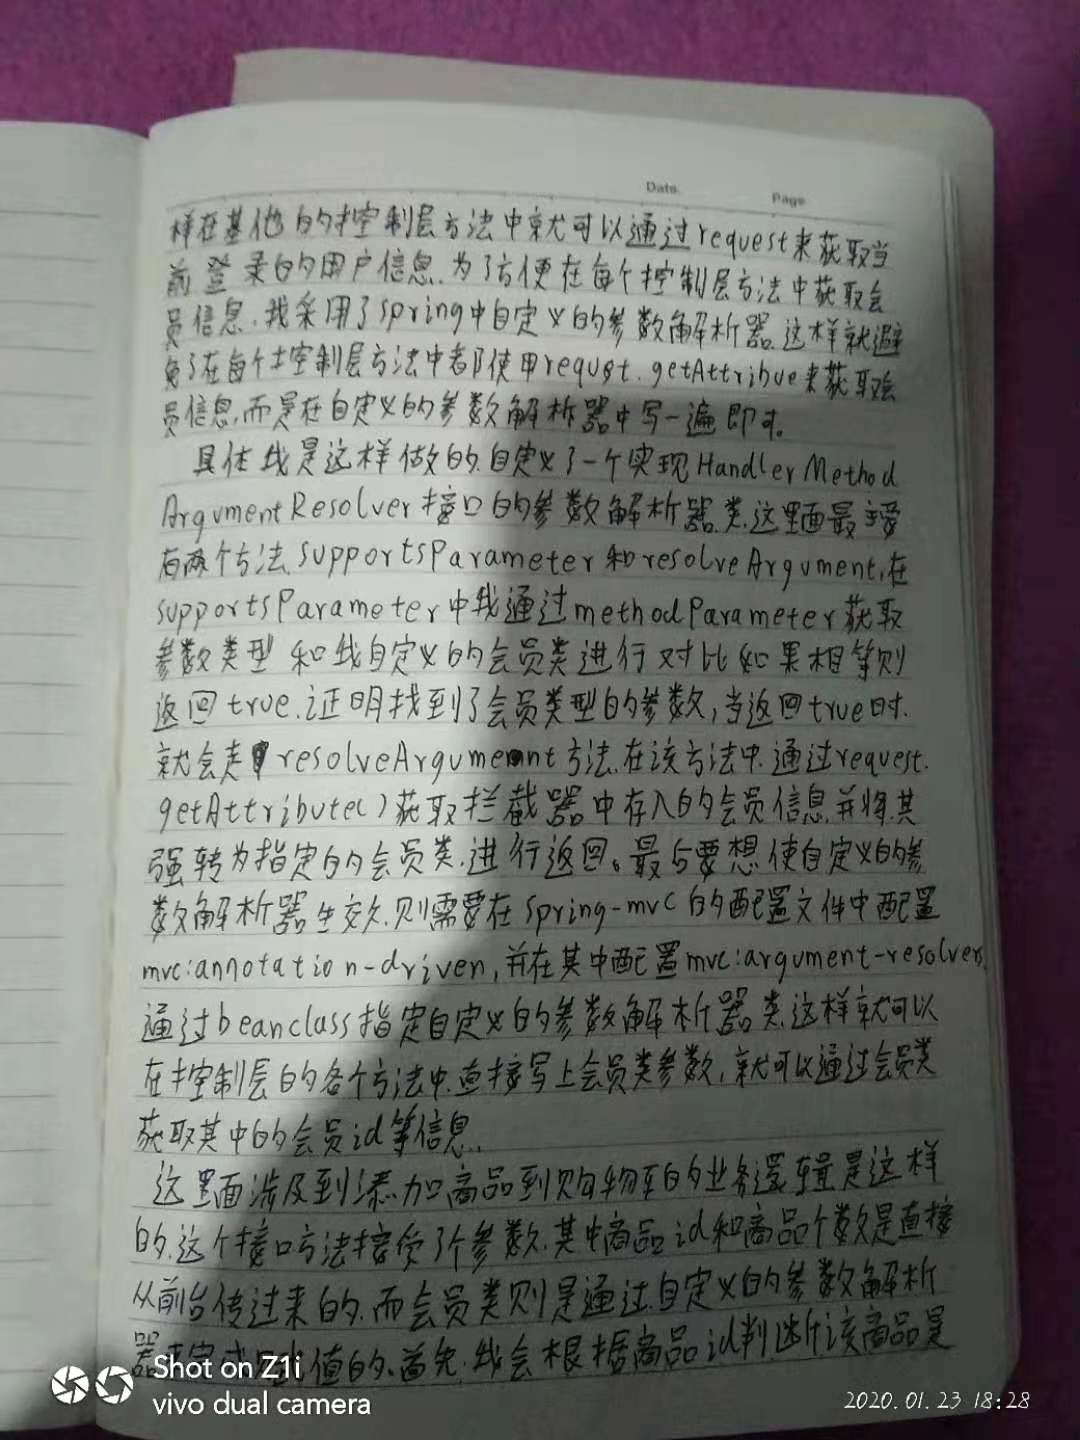 Date.
Page
样在其他的控制层方法中就可以通过request来获取当
前登录的用户信息.为了方便在每个控制层方法中获取会
员信息.我采用了spring中自定义的参数解析器.这样就避
免了在每个控制层方法中都使用requst.getAttribue来获取会
员信息,而是在自定义的参数解析器中写一遍即可。
具体我是这样做的.自定义了一个实现HandlerMethod
ArgumentResolver接口的参数解析器类.这里面最主要
有两个方法.supportsParameter和resolveArgument,在
supportsParameter中我通过methodParameter获取
参数类型和我自定义的会员类进行对比如果相等则
返回true.证明找到了会员类型的参数,当返回true时.
就会走resolveArgument方法.在该方法中.通过request.
getAttribute()获取拦截器中存入的会员信息.并将其
强转为指定的会员类.进行返回。最后要想使自定义的参
数解析器生效.则需要在spring-mvc的配置文件中配置
mvc:annotation-driven,并在其中配置mvc:argument-resolvers,
通过beanclass指定自定义的参数解析器类.这样就可以
在控制层的各个方法中.直接写上会员类参数,就可以通过会员类
获取其中的会员id等信息.
这里面涉及到添加商品到购物车的业务逻辑是这样
的.这个接口方法接受了个参数.其中商品id和商品个数是直接
从前台传过来的.而会员类则是通过自定义的参数解析
器来完成赋值的.首先.我会根据商品id判断该商品是
Shot on Z1i
vivo dual camera
2020.01.23 18:28